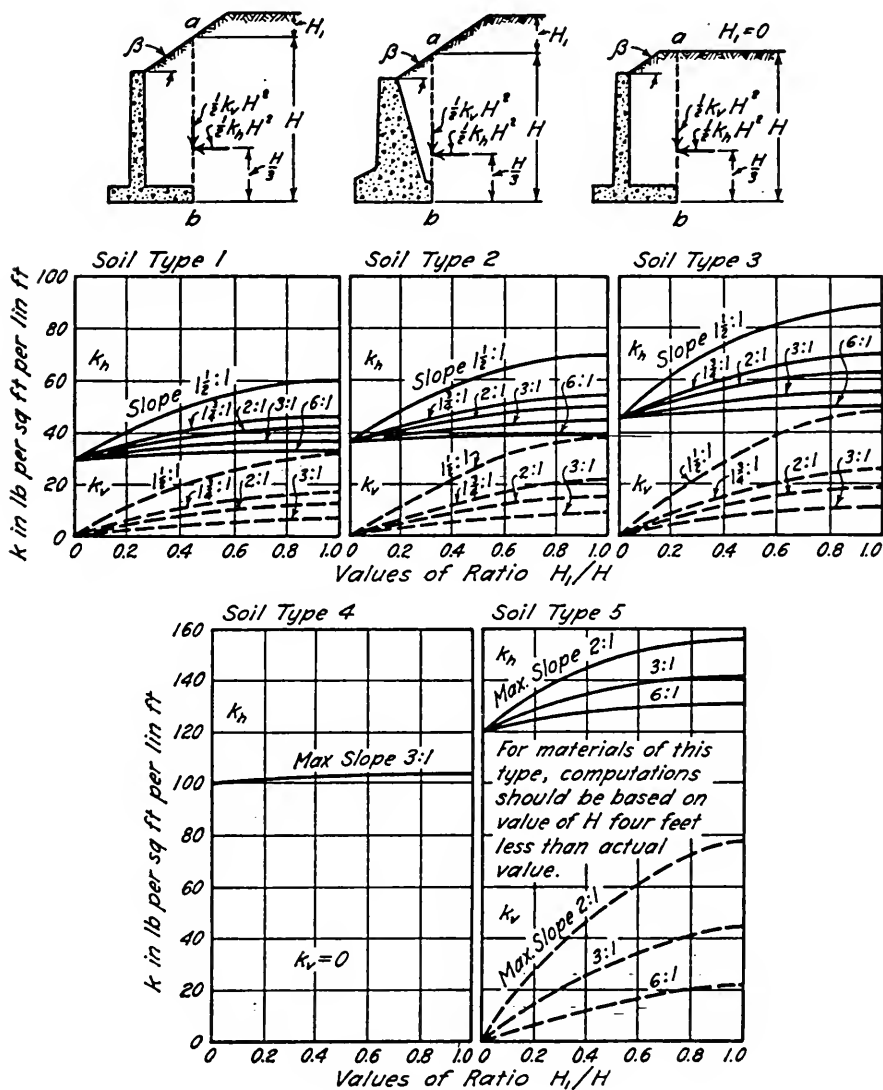 a
H₁
β
½kᵥH²
½kₕH²
H
H/3
b
a
H₁
β
½kᵥH²
½kₕH²
H
H/3
b
H₁=0
β
½kᵥH²
½kₕH²
H
H/3
b
k in lb per sq ft per lin ft
Soil Type 1
100
80
60
40
20
0
kₕ
Slope 1½:1
1¾:1
2:1
3:1
6:1
kᵥ
1½:1
1¾:1
2:1
3:1
0 0.2 0.4 0.6 0.8 1.0
Soil Type 2
kₕ
Slope 1½:1
1¾:1
2:1
3:1
6:1
kᵥ
1½:1
1¾:1
2:1
3:1
0 0.2 0.4 0.6 0.8 1.0
Soil Type 3
kₕ
Slope 1½:1
1¾:1
2:1
3:1
6:1
kᵥ
1½:1
1¾:1
2:1
3:1
0 0.2 0.4 0.6 0.8 1.0
Values of Ratio H₁/H
k in lb per sq ft per lin ft
Soil Type 4
160
140
120
100
80
60
40
20
0
kₕ
Max Slope 3:1
kᵥ=0
0 0.2 0.4 0.6 0.8 1.0
Soil Type 5
kₕ
Max. Slope 2:1
3:1
6:1
For materials of this
type, computations
should be based on
value of H four feet
less than actual
value.
kᵥ
Max. Slope 2:1
3:1
6:1
0 0.2 0.4 0.6 0.8 1.0
Values of Ratio H₁/H